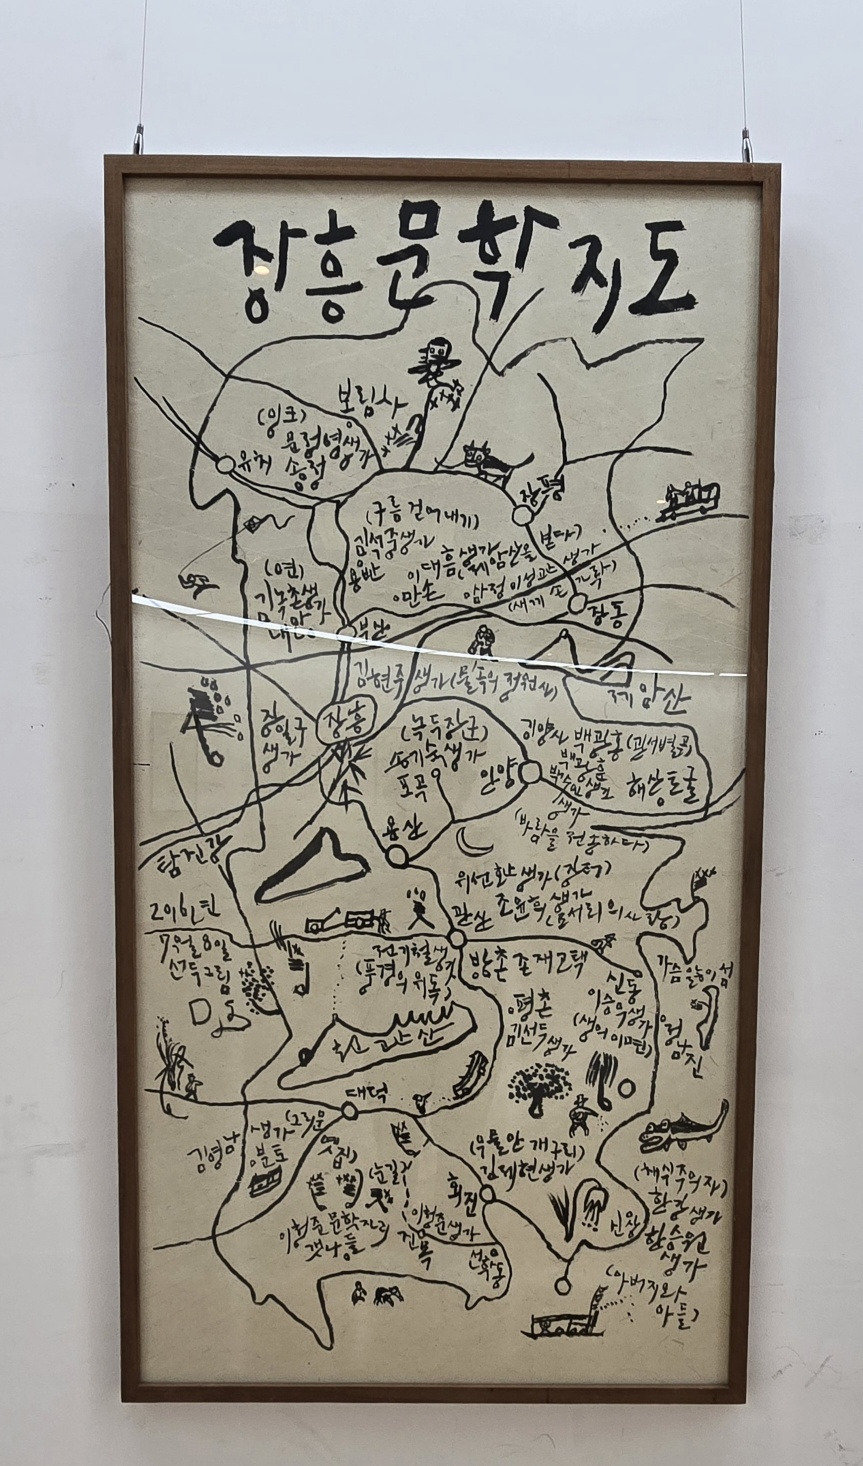 장흥문학지도
보림사
(잉크)
문정영생가
유치 송정
장평
(구름 걷어내기)
김석중생가
용반
이대흠생가
만손
(제암산을 본다)
이성관생가
장동
(연)
기녹촌생가
내안
부산
김현주생가(물속의 정원사)
제암산
장흥
장일구
생가
(녹두장군)
송기숙생가
포곡
안양
기양사 백광홍(관서별곡)
백광훈
생가
해산토굴
(바람을 전송하다)
용산
탐진강
위선환생가(장터)
관산
조윤희생가
2010년
7월 8일
선두그림
전기철생가
(풍경의 위독)
방촌 존재고택
신동
이승우생가
(생의 이면)
평촌
김선두
생가
정남진
천관산
대덕
김영남
생가(그리운
분토
옛집)
(눈길)
이청준문학자리
갯나들
이청준생가
진목
회진
선학동
(우물안 개구리)
김제현생가
신상
(채식주의자)
한강생가
한승원
생가
(아버지와
아들)